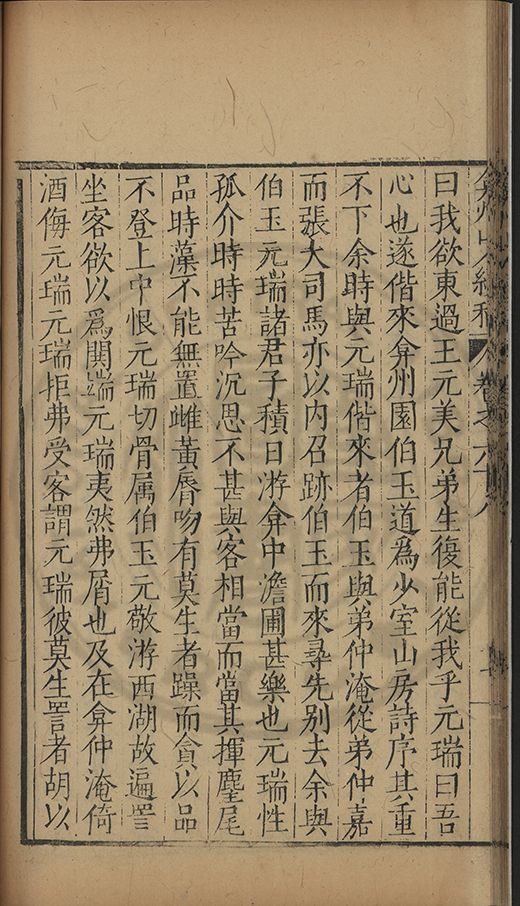 弇州山人續稿 卷之六十八
曰我欲東過王元美兄弟生復能從我乎元瑞曰吾
心也遂偕來弇州園伯玉道為少室山房詩序其重
不下余時與元瑞偕來者伯玉與弟仲淹從弟仲嘉
而張大司馬亦以内召跡伯玉而來尋先别去余與
伯玉元瑞諸君子積日游弇中澹圃甚樂也元瑞性
孤介時時苦吟沉思不甚與客相當而當其揮麈尾
品時藻不能無置雌黃脣吻有莫生者躁而貪以品
不登上中恨元瑞切骨属伯玉元敬游西湖故遍詈
坐客欲以為閧端元瑞夷然弗屑也及在弇仲淹倚
酒侮元瑞元瑞拒弗受客謂元瑞彼莫生詈者胡以